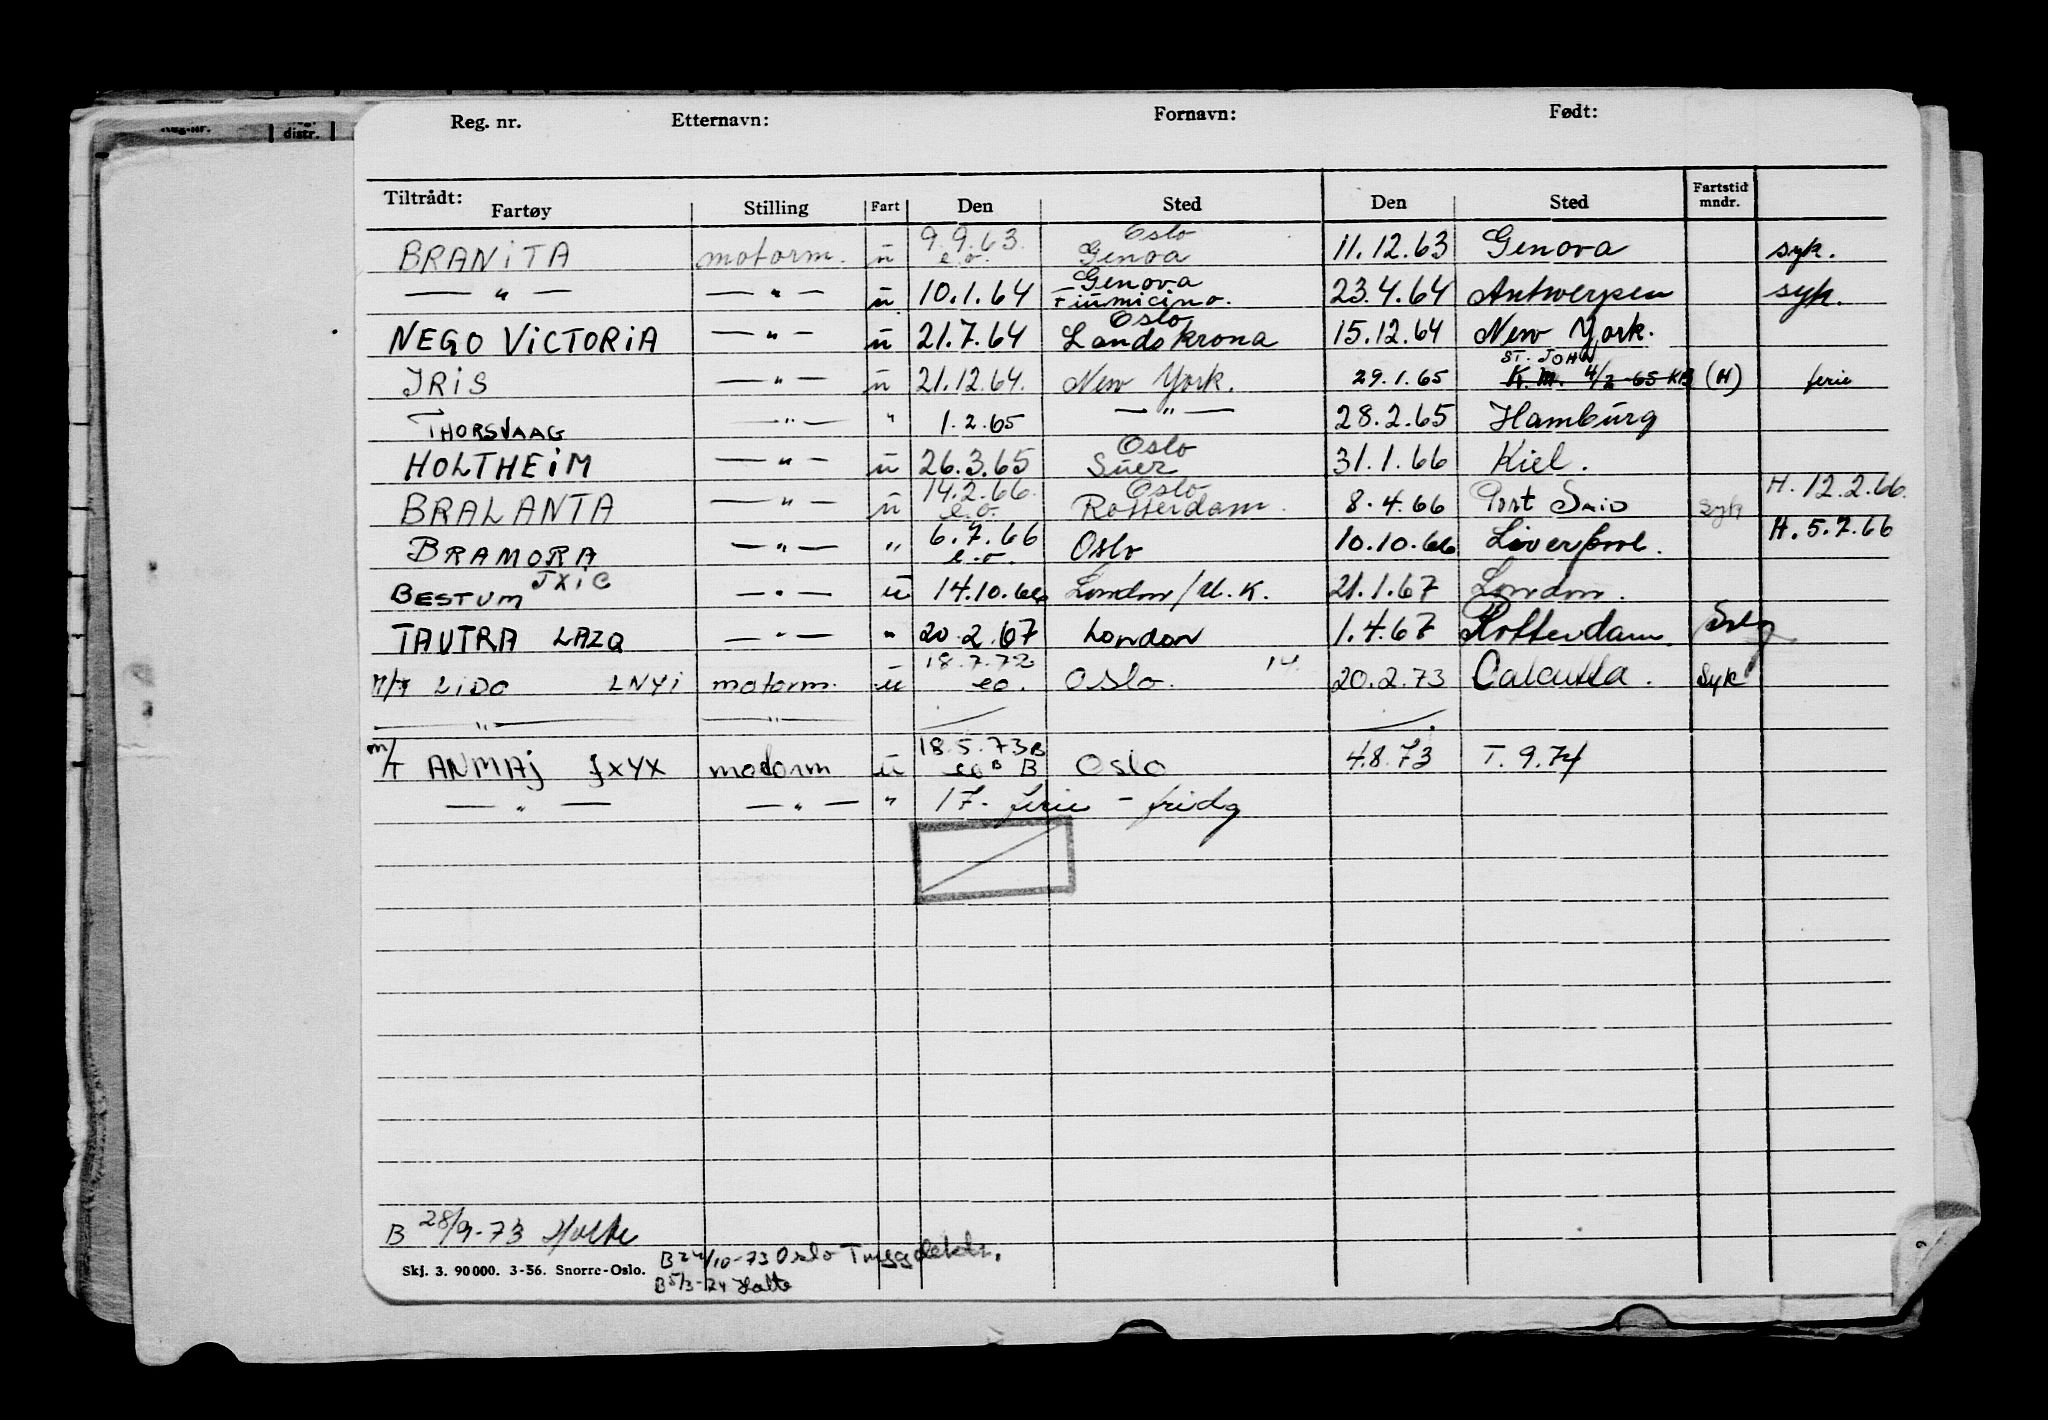 Reg. nr. Etternavn: Fornavn: Født:
Tiltrådt:
Fartøy Stilling Fart Den Sted Den Sted Fartstid mndr.
9.9.63. Oslo
BRANiTA motorm. ü e.o. Genoa 11.12.63 Genova syk.
Genova
— " — — " — ü 10.1.64 Fiumicino. 23.4.64 Antwerpen syk.
Oslo
NEGO ViCTORiA — " — ü 21.7.64 Landskrona 15.12.64 New York.
ST. JOHN
IRiS — " — ü 21.12.64. New York. 29.1.65 K.M. 4/2-65 KB (H) ferie
THORSVAAG — " — " 1.2.65 — " — 28.2.65 Hamburg
Oslo
HOLTHEiM — " — ü 26.3.65 Suer 31.1.66 Kiel.
14.2.66. Oslo H. 12.2.66.
BRALANTA — " — ü e.o. Rotterdam. 8.4.66 Port Said syk
6.7.66 H. 5.7.66
BRAMORA — " — " e.o. Oslo 10.10.66 Liverpool.
BESTUM JXiC — " — ü 14.10.66 London/U.K. 21.1.67 London.
TAUTRA LAZQ — " — " 20.2.67 London 1.4.67 Rotterdam
18.7.72 14.
M/T LiDO LNYi motorm. ü eo. Oslo. 20.2.73 Calcutta. Syk
— " — — " —
18.5.73 B
m/T ANMAj JXYX motorm ü eo B B Oslo 4.8.73 T. 9.74
— " — — " — " 17. ferie - fridg
B 28/9-73 Holte
B 24/10-73 Oslo Tryggdektr.
Skj. 3. 90 000. 3-56. Snorre-Oslo. B 5/3-74 Holte